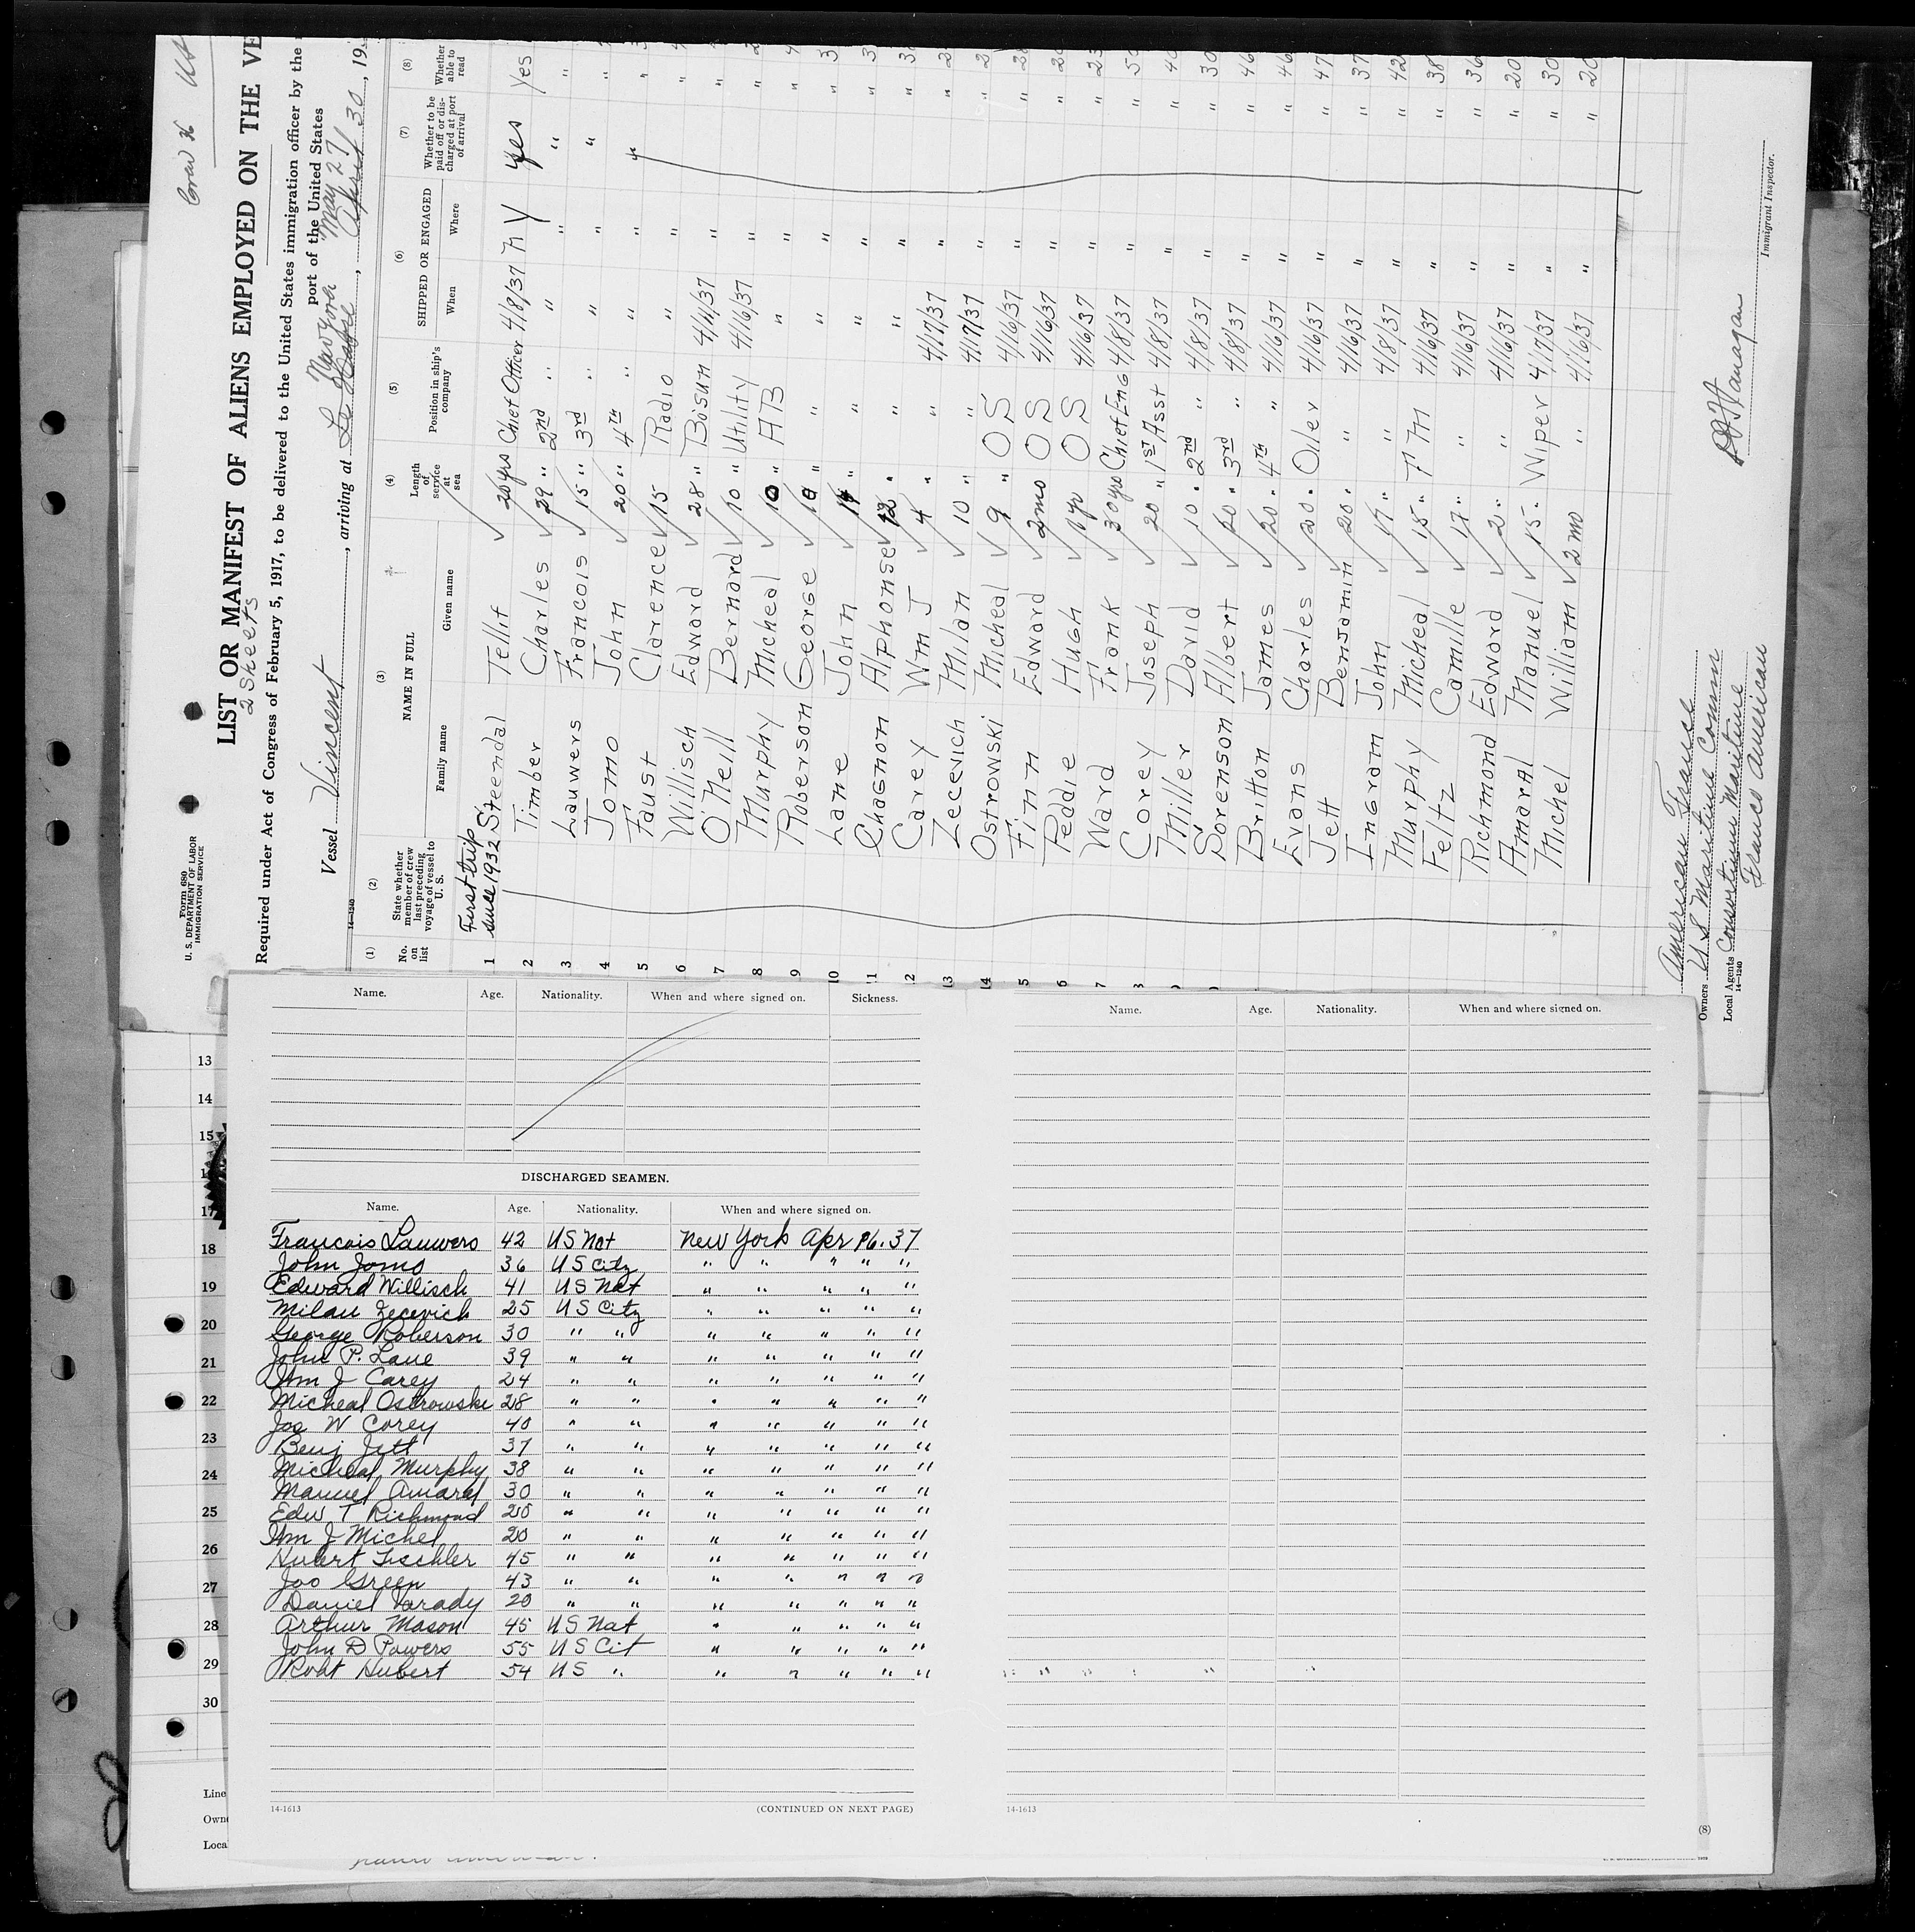 Crew
Form 680
U. S. DEPARTMENT OF LABOR
IMMIGRATION SERVICE
LIST OR MANIFEST OF ALIENS EMPLOYED ON THE VE
2 Sheets
Required under Act of Congress of February 5, 1917, to be delivered to the United States immigration officer by the
port of the United States
Vessel Vincent , arriving at Le Havre New York , May 27/ April 30 , 19
14—1240
(1) (2) (3) (4) (5) (6) (7) (8)
No. on list
State whether member of crew last preceding voyage of vessel to U. S.
NAME IN FULL
Family name Given name
Length of service at sea
Position in ship's company
SHIPPED OR ENGAGED
When Where
Whether to be paid off or discharged at port of arrival
Whether able to read
First trip since 1932
1 Steendal Tellif 20 yrs Chief Officer 4/8/37 N Y yes Yes
2 Timber Charles 29 " 2nd " " " " "
3 Lauwers Francois 15 " 3rd " " " " "
4 Jomo John 20 " 4th " " " " "
5 Faust Clarence 15 Radio " " "
6 Willisch Edward 28 " Bosun 4/11/37 " "
7 O'Neill Bernard 10 " Utility 4/16/37 " "
8 Murphy Micheal 10 " A B " " "
9 Roberson George 10 " " " " "
10 Lane John 14 " " " " "
11 Chagnon Alphonse 12 " " " " "
12 Carey Wm J 4 " " 4/17/37 " "
13 Zecevich Milan 10 " " 4/17/37 " "
14 Ostrowski Micheal 9 O S 4/16/37 " "
5 Finn Edward 2 mo O S 4/16/37 " " 28
6 Peddie Hugh 1 yr O S 4/16/37 " " 20
7 Ward Frank 30 yrs Chief Eng 4/8/37 " " 50
Corey Joseph 20 " 1st Asst 4/8/37 " " 40
Miller David 10 " 2nd " 4/8/37 " " 30
Sorenson Albert 20 " 3rd " 4/8/37 " " 46
Britton James 20 " 4th " 4/16/37 " " 46
Evans Charles 20 " Oiler 4/16/37 " " 47
Jett Benjamin 20 " " 4/16/37 " " 37
Ingram John 17 " " 4/8/37 " " 42
Murphy Micheal 15 " F M 4/16/37 " " 38
Feltz Camille 17 " " 4/16/37 " " 36
Richmond Edward 2 " " 4/16/37 " " 20
Amaral Manuel 15 " Wiper 4/17/37 " " 30
Michel William 2 mo " 4/16/37 " " 20
American France
Owners U S Maritime Comm
Local Agents Consortium Maritime
Franco American
14—1240
Immigrant Inspector.
Name. Age. Nationality. When and where signed on. Sickness.
DISCHARGED SEAMEN.
Name. Age. Nationality. When and where signed on.
Francois Lauwers 42 US Nat New York Apr 16. 37
John Jomo 36 US City " " " " "
Edward Willisch 41 US Nat " " " " "
Milan Zecevich 25 US City " " " " "
George Roberson 30 " " " " " " "
John P. Lane 39 " " " " " " "
Wm J Carey 24 " " " " " " "
Micheal Ostrowski 28 " " " " " " "
Jos W Corey 40 " " " " " " "
Benj Jett 37 " " " " " " "
Micheal Murphy 38 " " " " " " "
Manuel Amaral 30 " " " " " " "
Edw T Richmond 20 " " " " " " "
Wm J Michel 20 " " " " " " "
Hubert Tischler 45 " " " " " " "
Jos Green 43 " " " " " " "
Daniel Varady 20 " " " " " " "
Arthur Mason 45 US Nat " " " " "
John D Powers 55 US Cit " " " " "
Robt Hubert 54 US " " " " " "
14-1613 (CONTINUED ON NEXT PAGE)
Name. Age. Nationality. When and where signed on.
14-1613
(8)
13
14
15
17
18
19
20
21
22
23
24
25
26
27
28
29
30
Line
Own
Loca